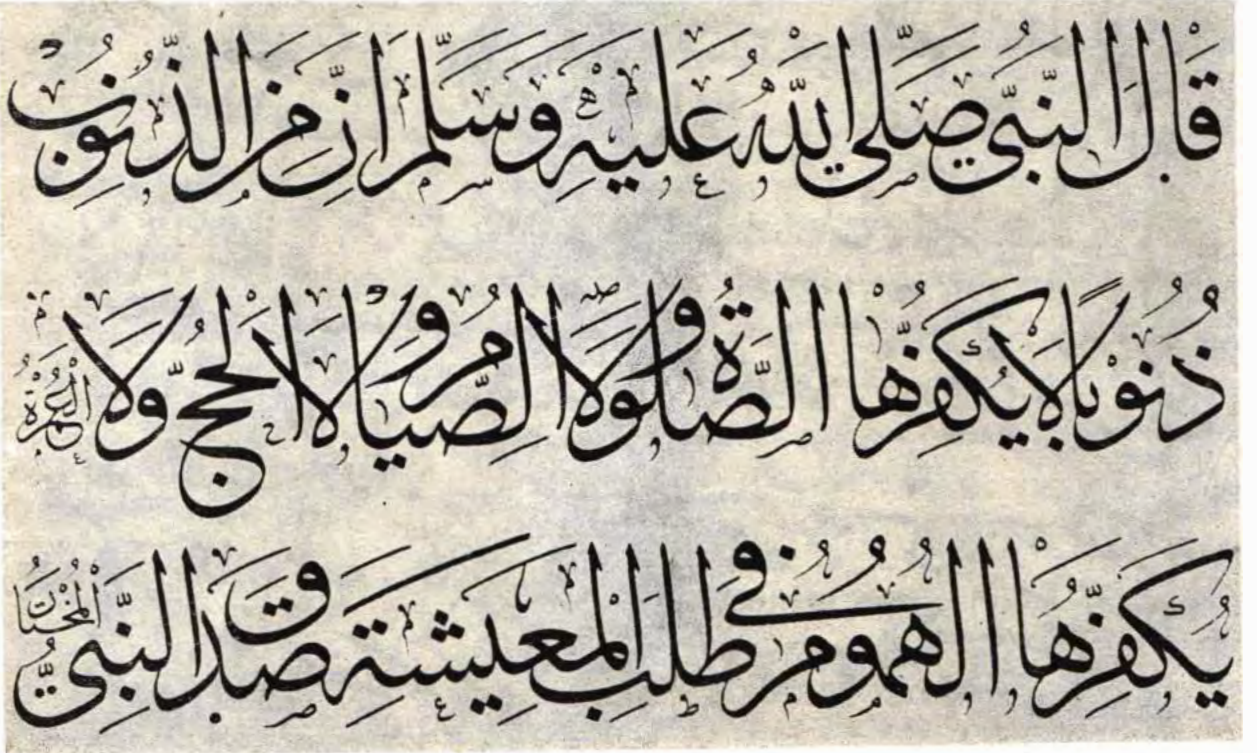 قَالَ النَّبِيُّ صَلَّى اللّٰهُ عَلَيْهِ وَسَلَّمَ اِنَّ مِنَ الذُّنُوبِ
ذُنُوْبًا لَا يُكَفِّرُهَا الصَّلٰوةُ وَلَا الصِّيَامُ وَلَا الْحَجُّ وَلَا الْعُمْرَةُ
يُكَفِّرُهَا الْهُمُومُ فِي طَلَبِ الْمَعِيشَةِ صَدَقَ النَّبِيُّ الْمُخْتَارُ